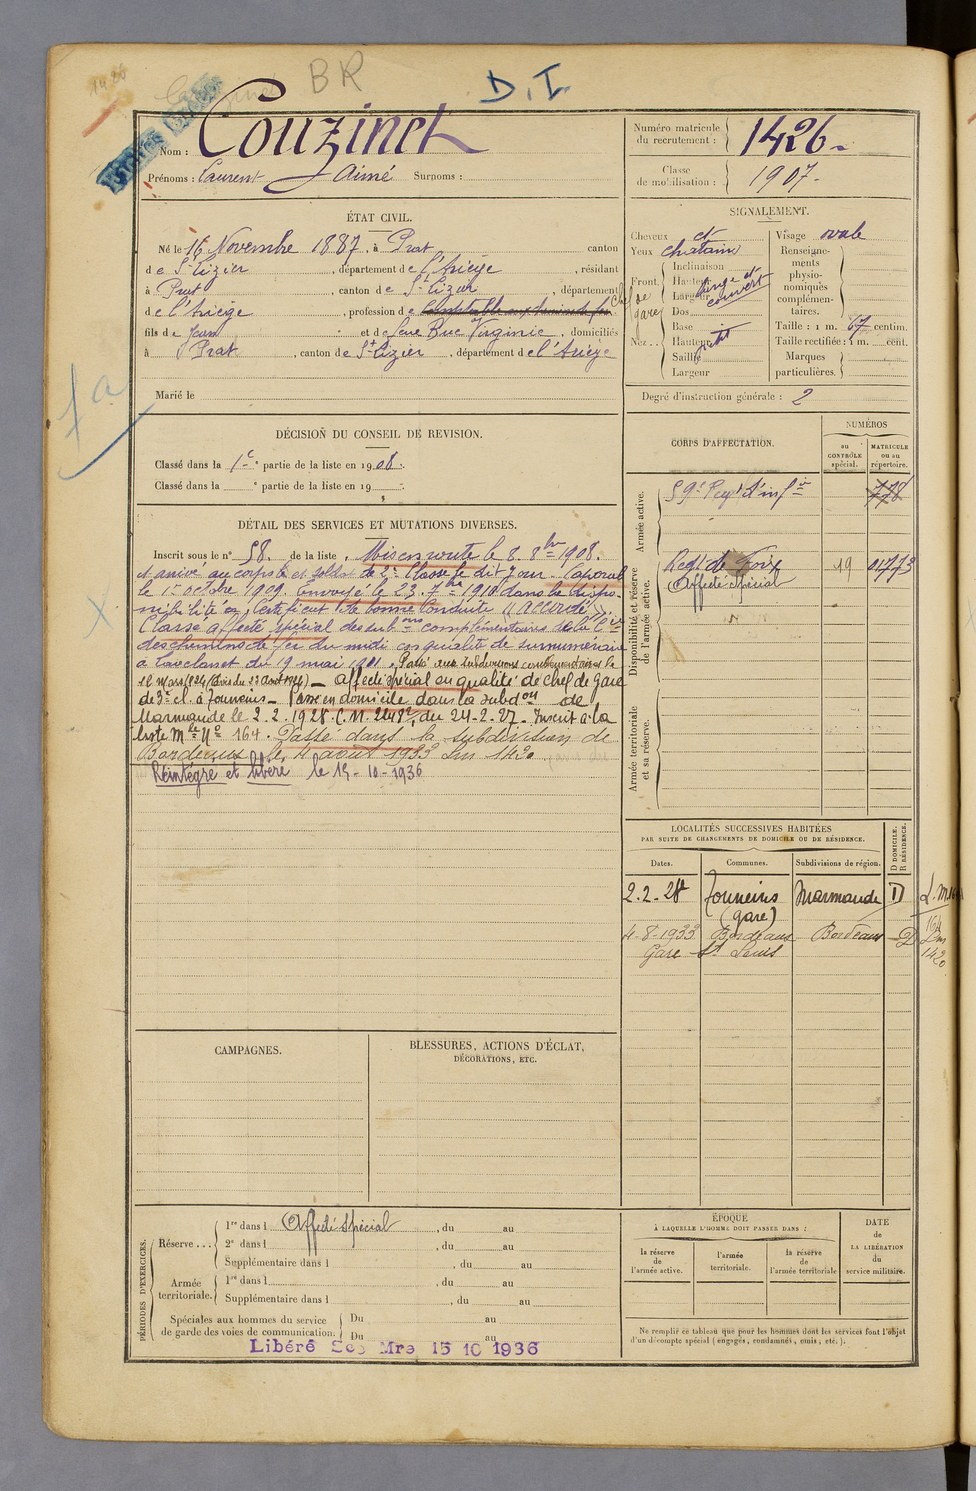 1426
BR
D. I.
Nom : Couzinet
Prénoms : Laurent Aimé Surnoms :
Numéro matricule du recrutement : 1426
Classe de mobilisation : 1907
ÉTAT CIVIL.
Né le 16 Novembre 1887, à Prat canton
de St Lizier, département de l'Ariège, résidant
à Prat, canton de St Lizier, département
de l'Ariège, profession de Chef de gare
fils de Jean et de feue Buc Virginie, domiciliés
à Prat, canton de St Lizier, département de l'Ariège
Marié le
SIGNALEMENT.
Cheveux et
Yeux chatain
Front. Inclinaison
Hauteur
Largeur
couvert
Nez Dos
Base
Hauteur
Saillie
Largeur
Visage ovale
Renseignements physionomiques complémentaires.
Taille : 1 m. 67 centim.
Taille rectifiée : 1 m. cent.
Marques particulières.
Degré d'instruction générale : 2
fa
DÉCISION DU CONSEIL DE REVISION.
Classé dans la 1e partie de la liste en 1908.
Classé dans la e partie de la liste en 19 .
CORPS D'AFFECTATION.
NUMÉROS
au CONTRÔLE spécial.
MATRICULE ou au répertoire.
Armée active.
59e Regt d'Infie 778
Disponibilité et réserve de l'armée active.
Regt de Foix 19 01773
Affecté spécial
Armée territoriale et sa réserve.
DÉTAIL DES SERVICES ET MUTATIONS DIVERSES.
Inscrit sous le n° 58. de la liste. Mis en route le 8. 8bre 1908.
et arrivé au corps le et soldat de 2e Classe le dit jour. Caporal
le 1er octobre 1909. Envoyé le 23. 7bre 1910 dans la dispo-
nibilité. Certificat de bonne Conduite "Accordé".
Classé affecté spécial des subons complémentaires de la Cie
des chemins de fer du midi en qualité de surnuméraire
à Lavelanet du 19 mai 1911. Passé aux subdivisions complémentaires le
12 Mars 1924 (Avis du 23 Août 1924) - Affecté spécial en qualité de Chef de Gare
de 3e cl. à Tonneins - Passé en domicile dans la subdon de
Marmande le 2.2.1928. C.M. 2248 du 24-2-27 - Inscrit à la
liste Mle No 164. Passé dans la subdivision de
Bordeaux le 4 août 1933 Lm 1420
Réintégré et libéré le 15-10-1936
LOCALITÉS SUCCESSIVES HABITÉES
PAR SUITE DE CHANGEMENTS DE DOMICILE OU DE RÉSIDENCE.
Dates. Communes. Subdivisions de région. D DOMICILE. R RÉSIDENCE.
2.2.28 Tonneins (gare) Marmande D L.M. 164
4-8-1933 Bordeaux Bordeaux D Lm 1420
Gare St Louis
CAMPAGNES.
BLESSURES, ACTIONS D'ÉCLAT,
DÉCORATIONS, ETC.
PÉRIODES D'EXERCICES.
Réserve ... 1re dans l Affecté spécial, du au
2e dans l , du au
Supplémentaire dans l , du au
Armée territoriale. 1re dans l , du au
Supplémentaire dans l , du au
Spéciales aux hommes du service de garde des voies de communication. Du au
Du au
Libéré Sce Mre 15 10 1936
ÉPOQUE
À LAQUELLE L'HOMME DOIT PASSER DANS :
la réserve de l'armée active.
l'armée territoriale.
la réserve de l'armée territoriale
DATE de LA LIBÉRATION du service militaire.
Ne remplir ce tableau que pour les hommes dont les services font l'objet
d'un décompte spécial (engagés, condamnés, omis, etc.).